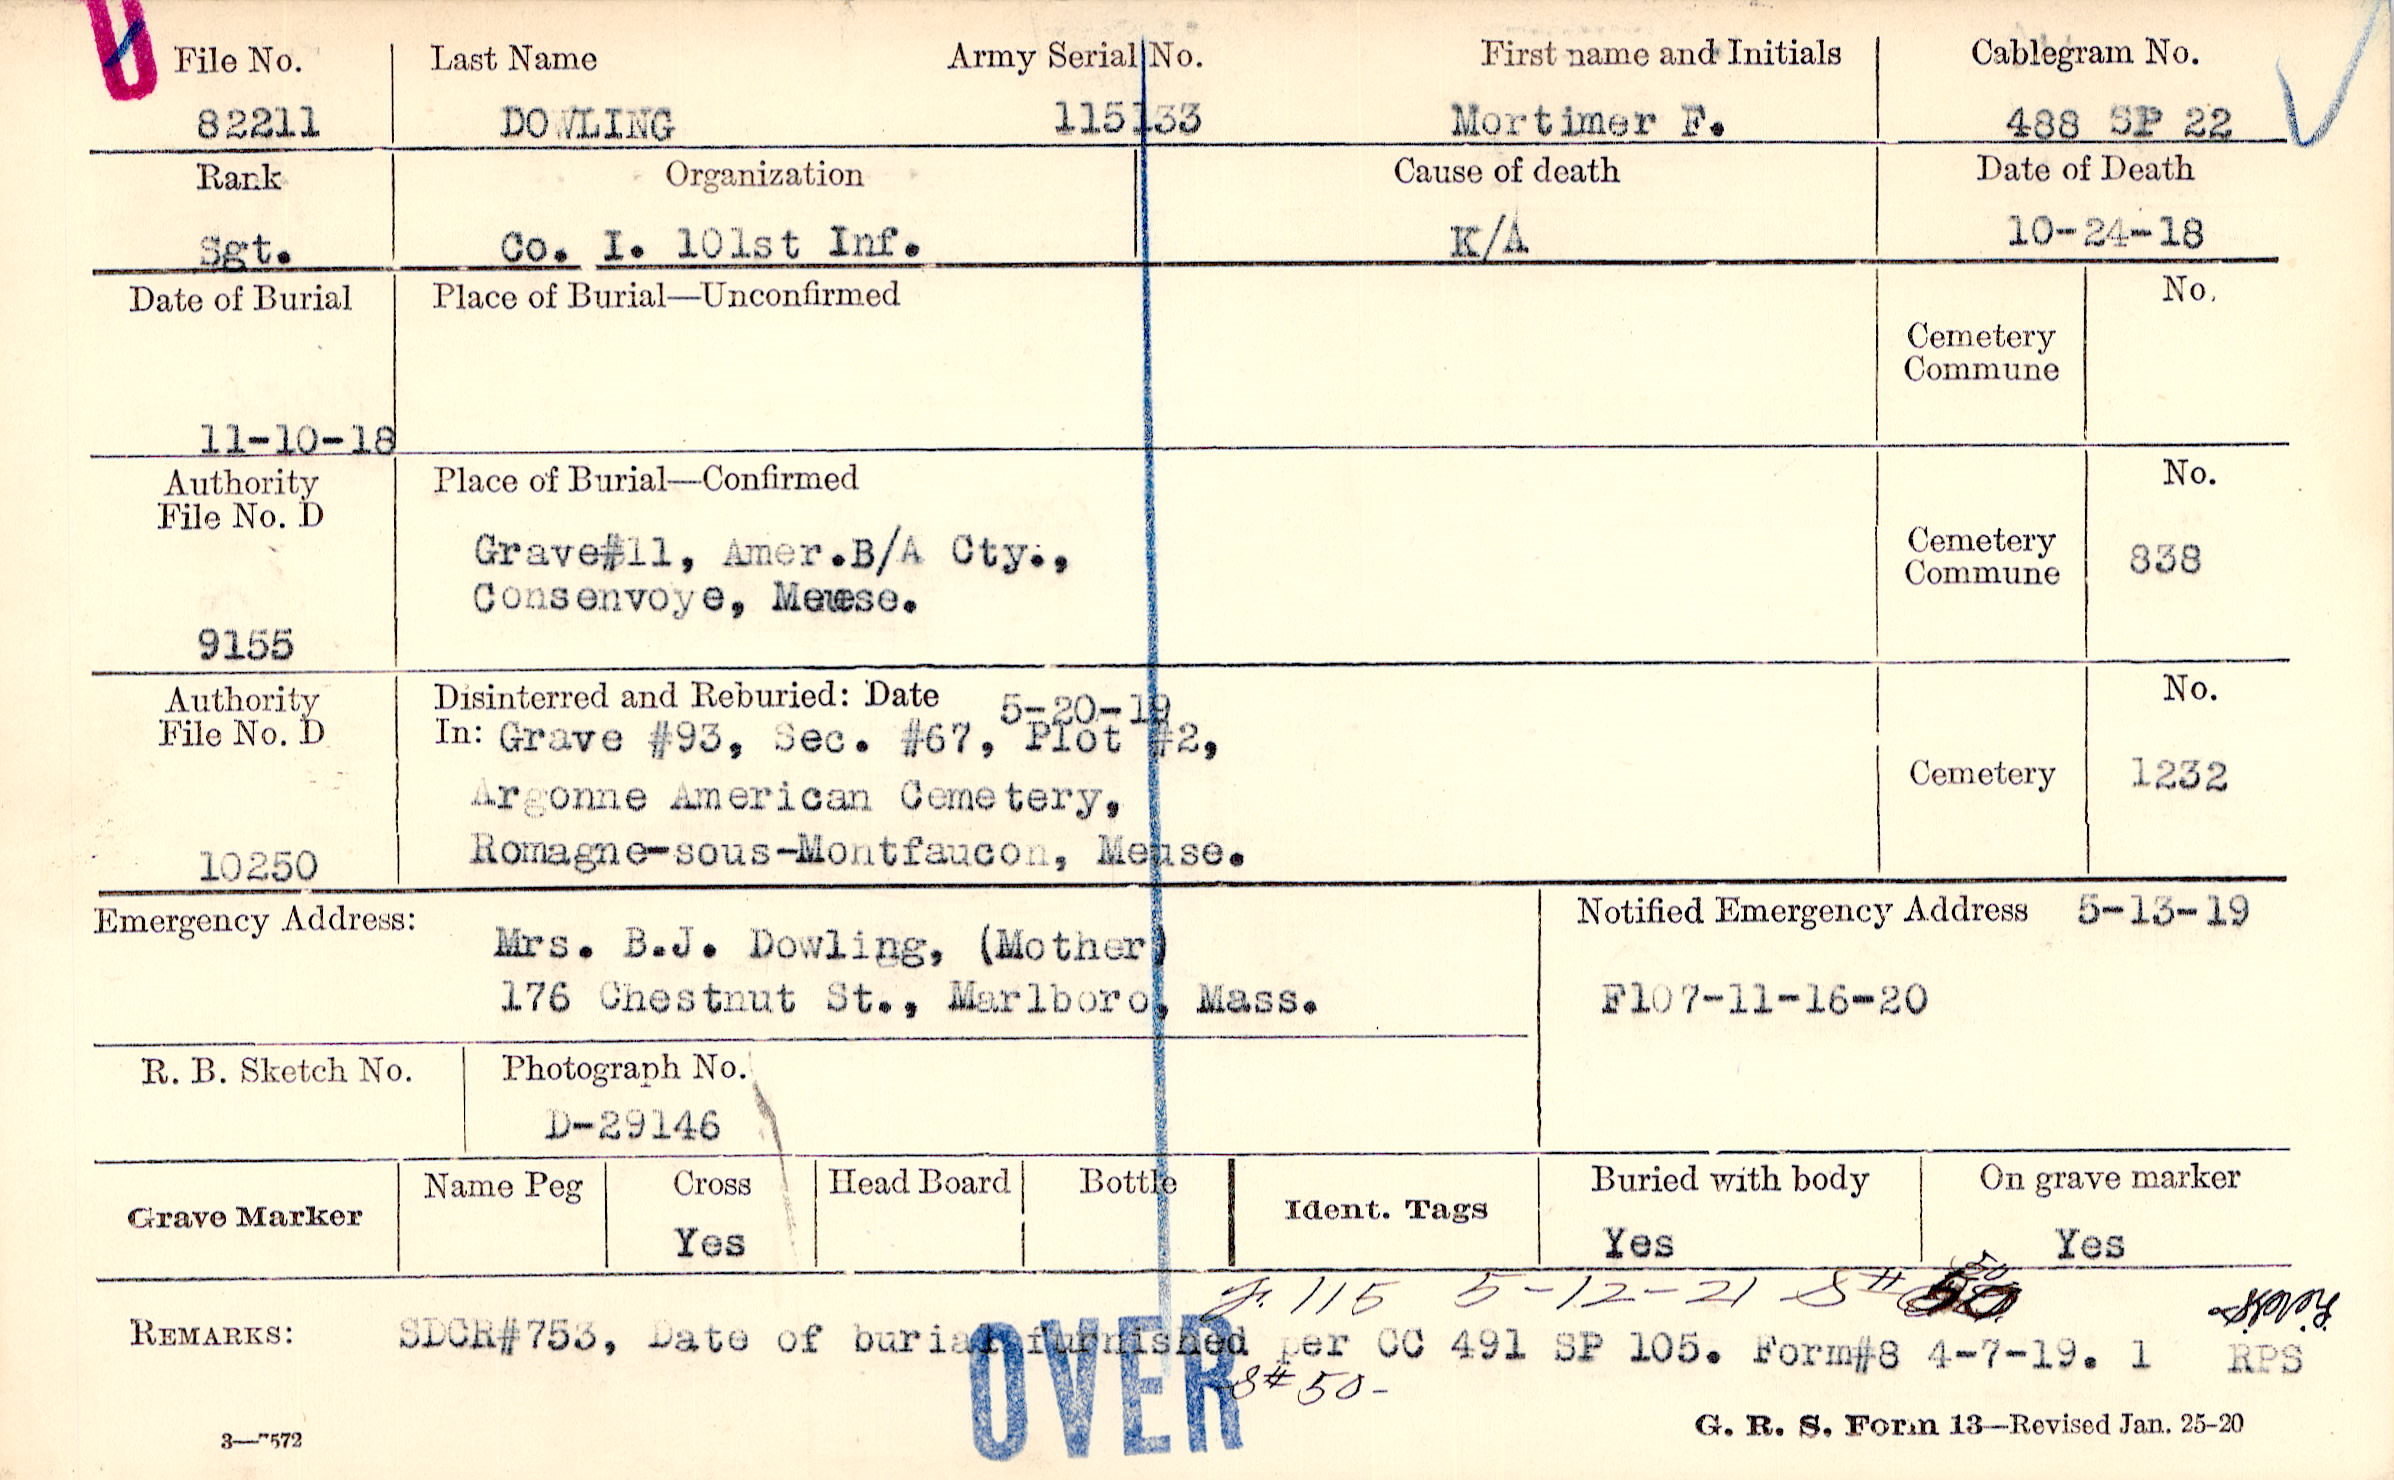 File No. Last Name Army Serial No. First name and Initials Cablegram No.
82211 DOWLING 115133 Mortimer F. 488 SP 22
Rank Organization Cause of death Date of Death
Sgt. Co. I. 101st Inf. K/A 10-24-18
Date of Burial Place of Burial—Unconfirmed No.
Cemetery
Commune
11-10-18
Authority Place of Burial—Confirmed No.
File No. D
Grave#11, Amer.B/A Cty., Cemetery
Commune 838
Consenvoye, Meuse.
9155
Authority Disinterred and Reburied: Date 5-20-19 No.
File No. D In: Grave #93, Sec. #67, Plot #2,
Argonne American Cemetery, Cemetery 1232
10250 Romagne-sous-Montfaucon, Meuse.
Emergency Address: Notified Emergency Address 5-13-19
Mrs. B.J. Dowling, (Mother)
176 Chestnut St., Marlboro, Mass. F107-11-16-20
R. B. Sketch No. Photograph No.
D-29146
Grave Marker Name Peg Cross Head Board Bottle Ident. Tags Buried with body On grave marker
Yes Yes Yes
115 5-12-21 S# 50
REMARKS: SDCR#753, Date of burial furnished per CC 491 SP 105. Form#8 4-7-19. 1 RPS
S# 50-
OVER
3—7572 G. R. S. Form 13—Revised Jan. 25-20